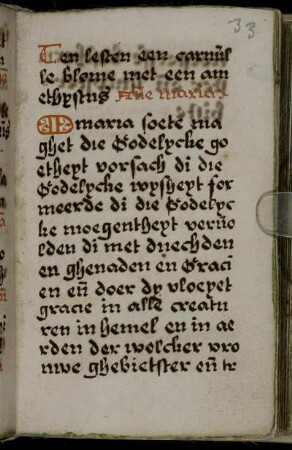 33
Ten lesten een carnul
le blome met een am
ethystus Aue maria
O maria soete ma
ghet die Godelycke go
etheyt vorsach di die
Godelycke wysheyt for
meerde di die Godelyc
ke moegentheyt veruo
lden di met duechden
en ghenaden en Graci
en eñ doer dy vloeyet
gracie in alle creatu
ren in hemel en in ae
rden der welcker vro
uwe ghebietster eñ tr